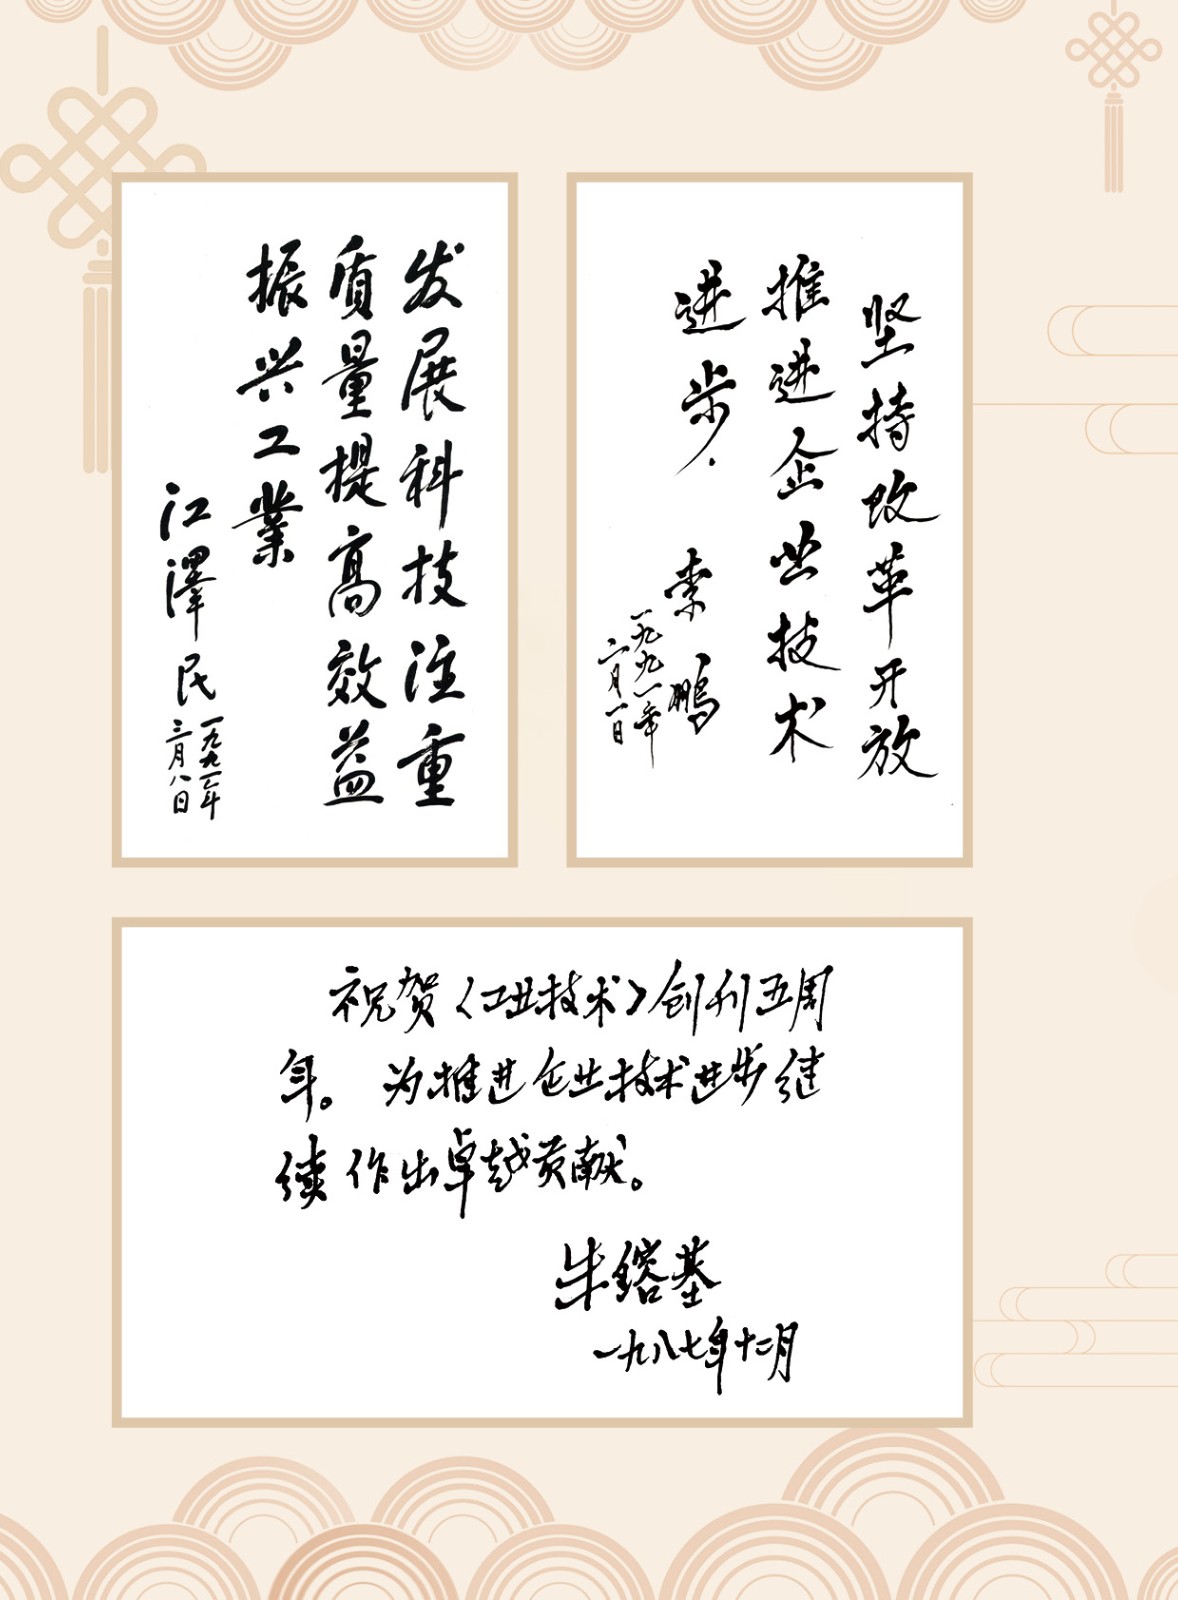 发展科技注重
质量提高效益
振兴工業
江澤民
一九九一年
三月八日
坚持改革开放
推进企业技术
进步.
李鹏
一九九一年
二月一日
祝贺《工业技术》创刊五周
年。为推进企业技术进步继
续作出卓越贡献。
朱鎔基
一九八七年十二月